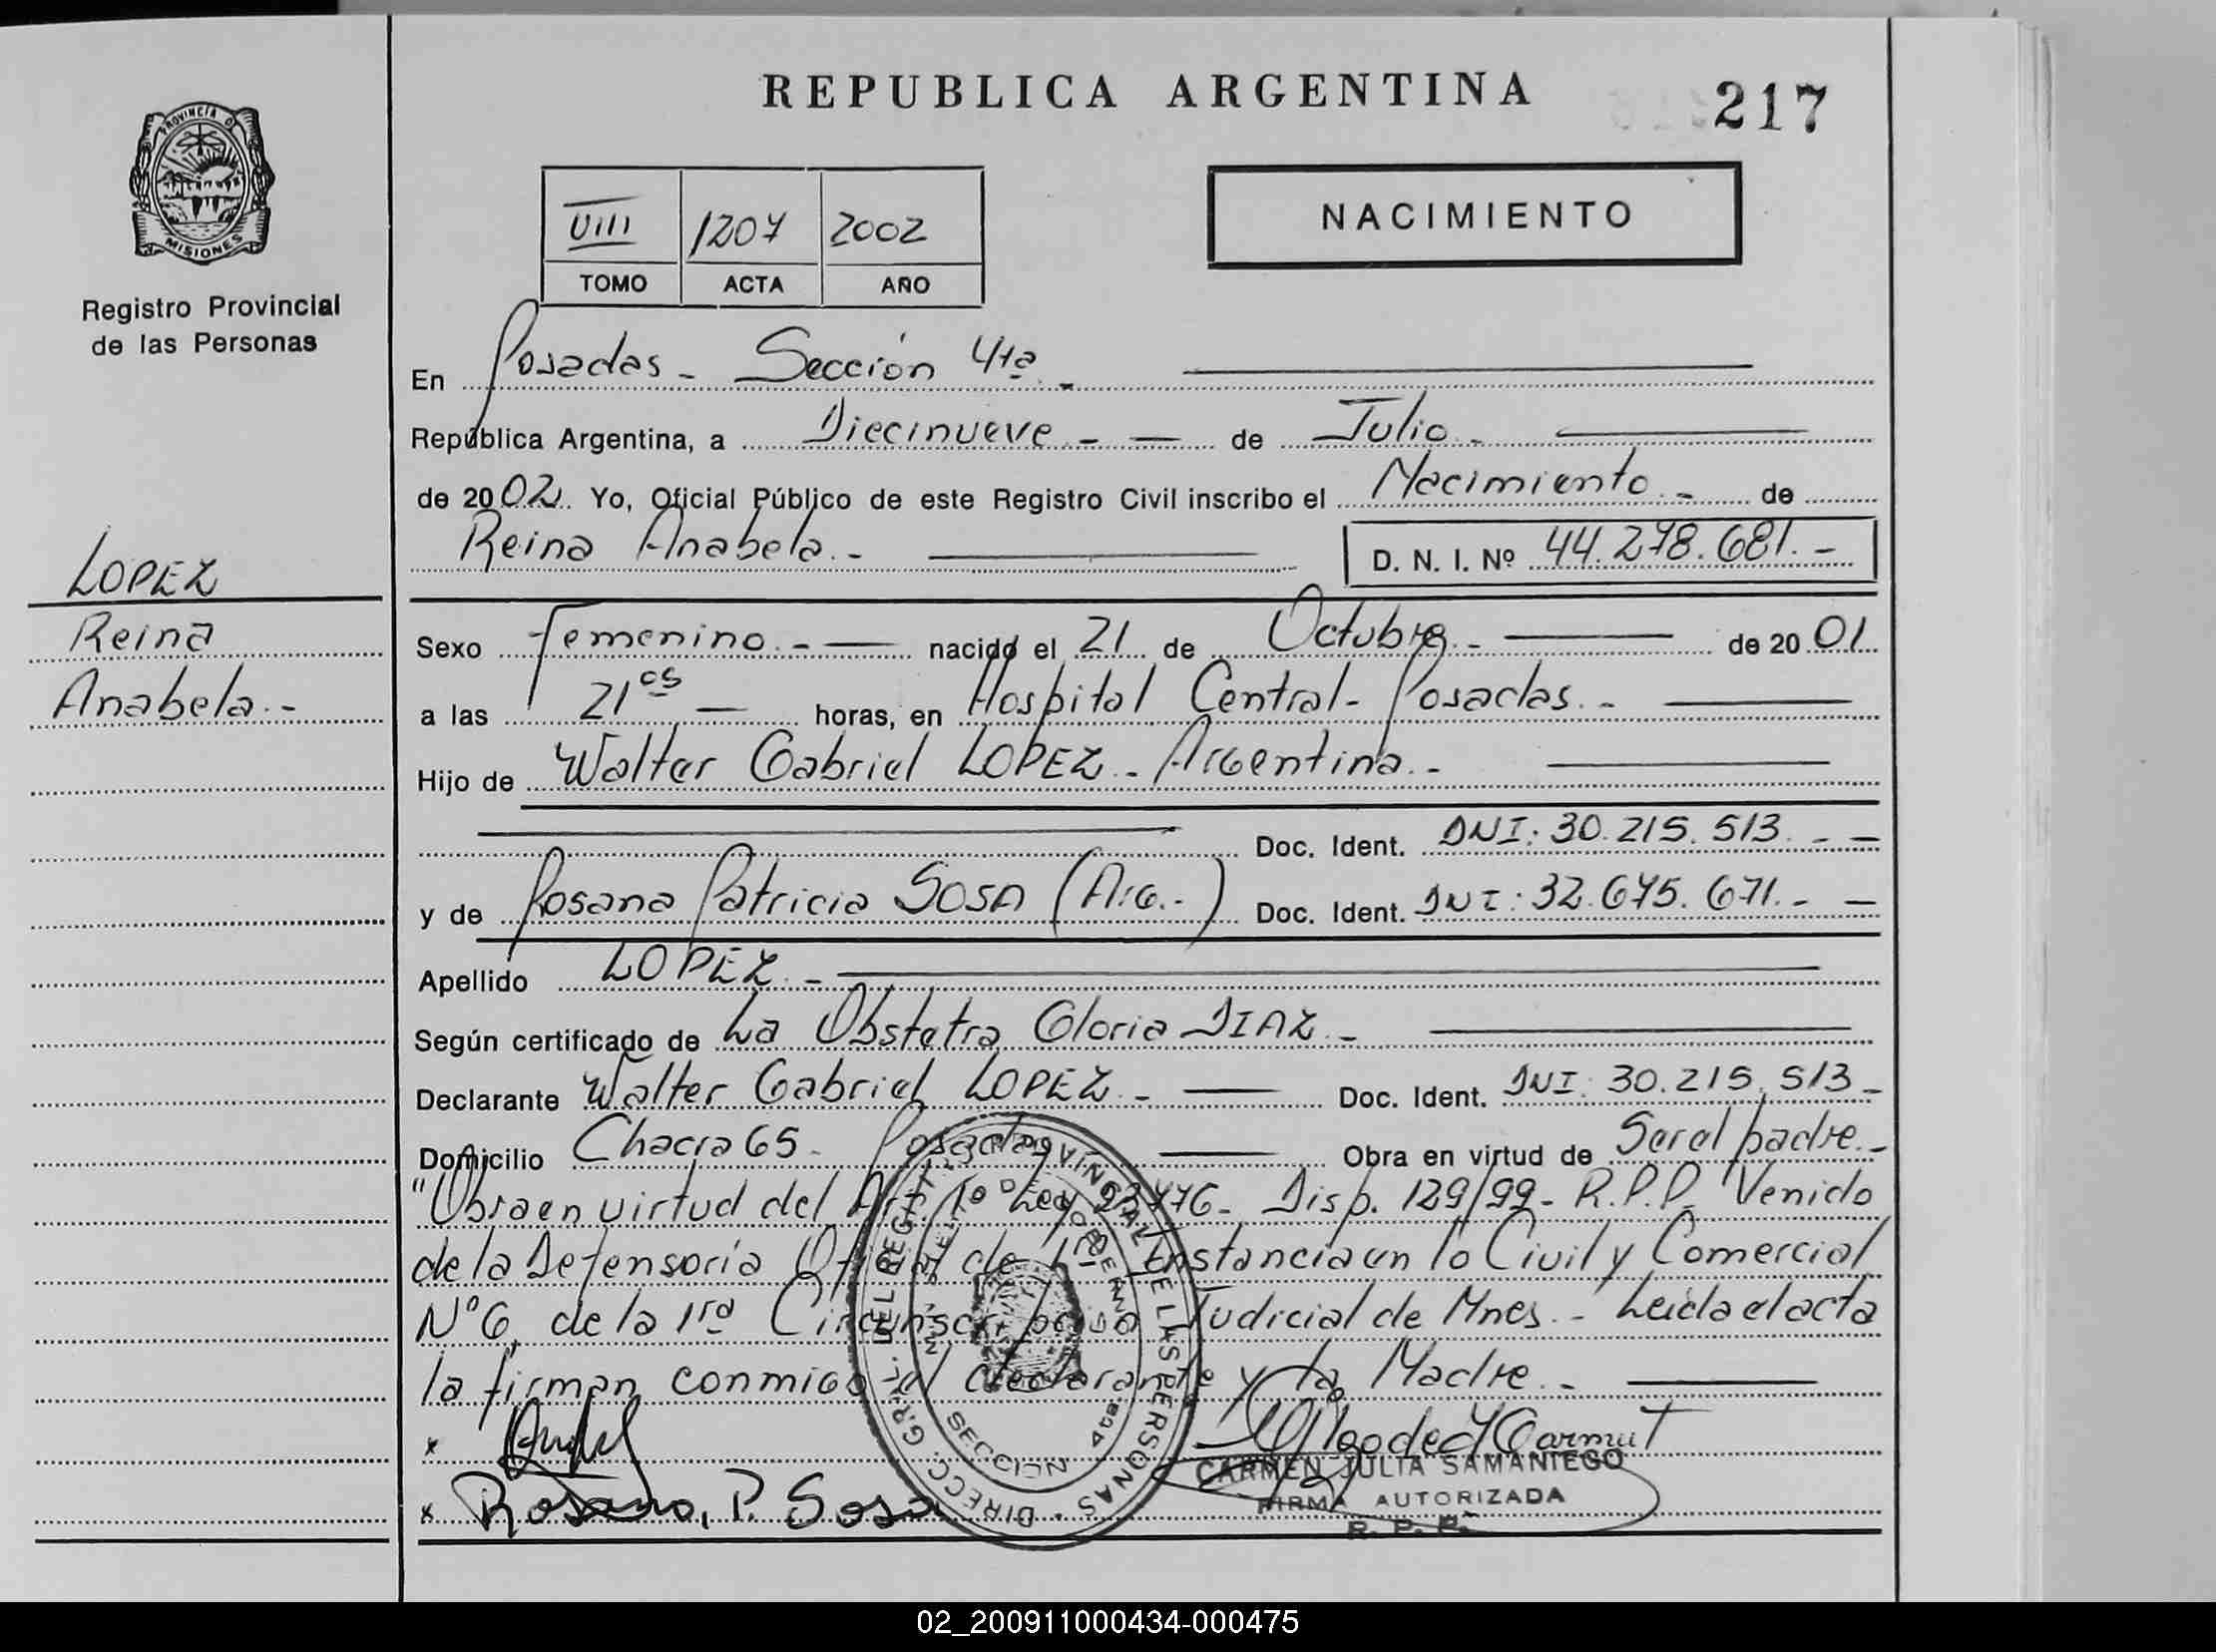 REPUBLICA ARGENTINA
217
PROVINCIA D
MISIONES
Registro Provincial
de las Personas
VIII 1207 2002
TOMO ACTA AÑO
NACIMIENTO
En Posadas - Sección 4ta. -
República Argentina, a Diecinueve. - - de Julio. -
de 2002. Yo, Oficial Público de este Registro Civil inscribo el Nacimiento. - de
Reina Anabela. - D. N. I. Nº 44.278.681. -
LOPEZ
Reina
Anabela. -
Sexo Femenino. - - nacido el 21 de Octubre. - de 2001
a las 21 cs - horas, en Hospital Central - Posadas. -
Hijo de Walter Gabriel LOPEZ - Argentina. -
Doc. Ident. DNI: 30.215.513. - -
y de Rosana Patricia SOSA (Arg. -) Doc. Ident. DNI: 32.675.671. - -
Apellido LOPEZ. -
Según certificado de La Obstetra Gloria DIAZ. -
Declarante Walter Gabriel LOPEZ. - Doc. Ident. DNI: 30.215.513 -
Domicilio Chacra 65 - Posadas Obra en virtud de Ser el padre. -
"Obra en virtud del Art. 1º Ley 23776 - Disp. 129/99 - R.P.P. Venido
de la Defensoría Oficial de 1ra Instancia en lo Civil y Comercial
Nº 6 de la 1ra Circunscripción Judicial de Mnes. - Leida el acta
la firman conmigo el declarante y la Madre. -
DIRECC. GRAL. DEL REGIT. PROVINCIAL DE LAS PERSONAS
SECCION 4ta
x
CARMEN JULIA SAMANIEGO
x Rosana, P. Sosa
FIRMA AUTORIZADA
R. P. P.
02_200911000434-000475